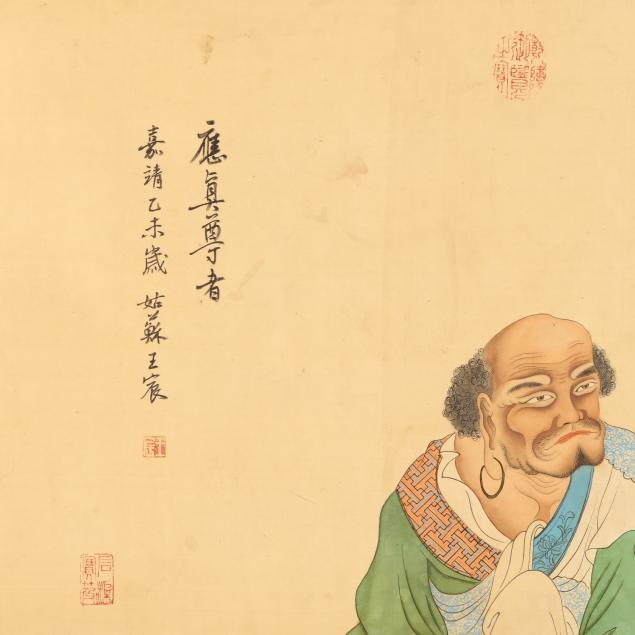 應眞尊者
嘉靖乙未歲 姑蘇王宸